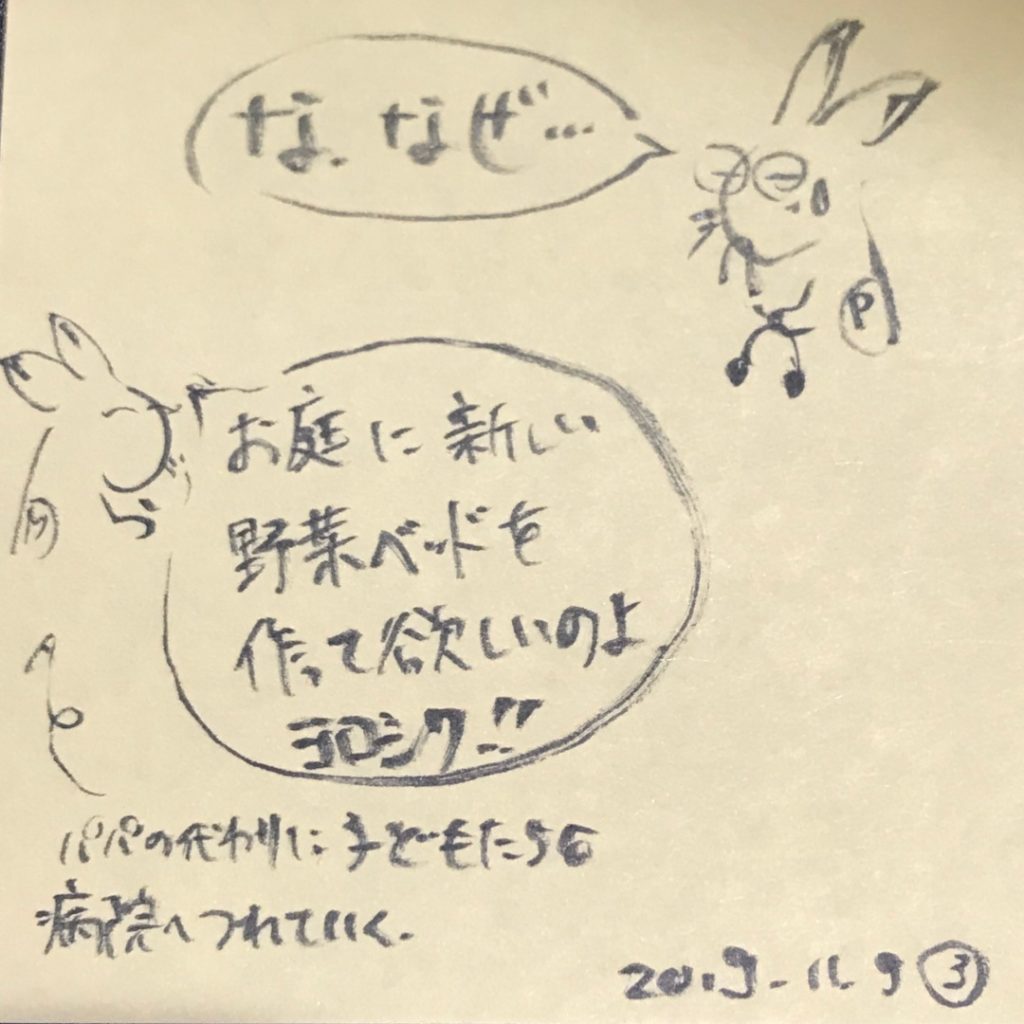 な、なぜ…
P
お庭に新しい
野菜ベッドを
作って欲しいのよ
ヨロシク!!
M
パパの代わりに子どもたちを
病院へつれていく.
2019.11.9 ③